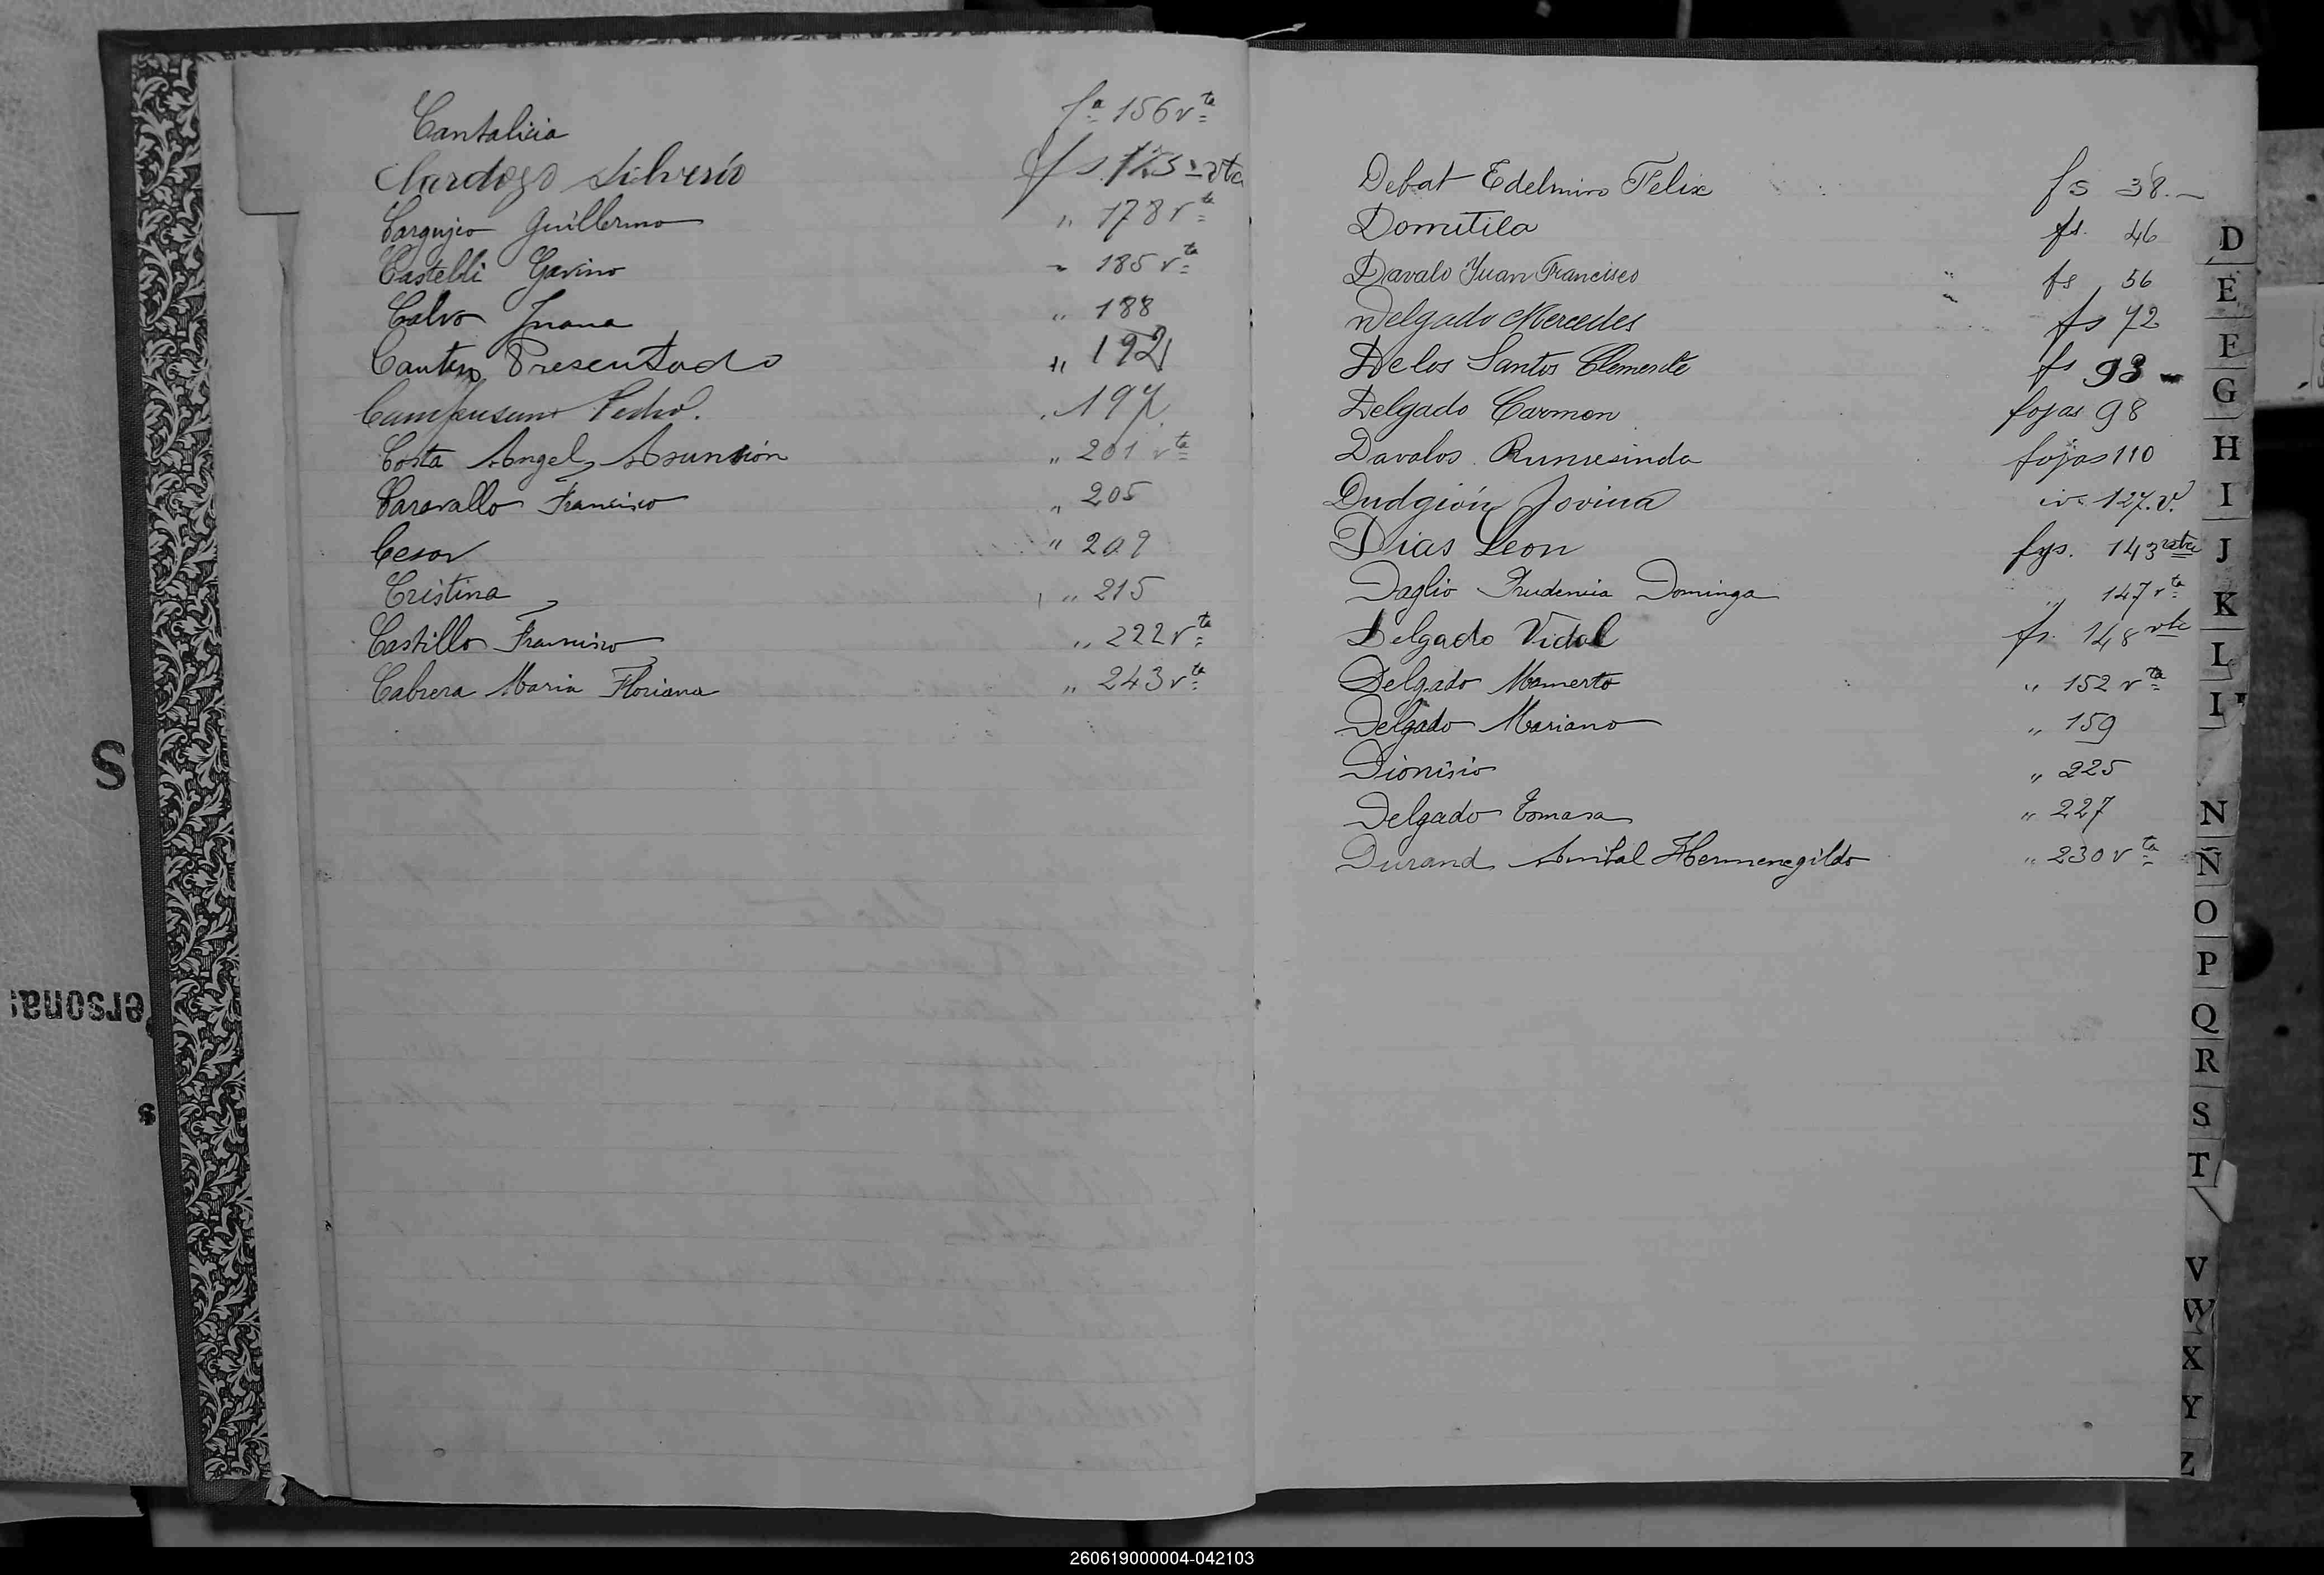 Cantalicia fª 156 vta
Cardozo Silverio fs. 173 vta
Cargujio Guillermo " 178 vta
Castelli Gavino " 185 vta
Calvo Juana " 188
Cantero Presentado " 192
Campusano Pedro. " 197
Costa Angel Asunsión " 201 vta
Caravallo Francisco " 205
Cesar " 209
Cristina " 215
Castillo Francisco " 222 vta
Cabrera Maria Floriana " 243 vta
Debat Edelmiro Felix fs 38.-
Domitila fs. 46
Davalo Juan Francisco fs 56
Delgado Mercedes fs 72
De los Santos Clemente fs 93
Delgado Carmen fojas 98
Davalos Rumesinda fojas 110
Dudgión Jovina 127.v.
Dias Leon fjs. 143 vta
Daglio Prudencia Dominga " 147 vta
Delgado Vidal fs. 148 vta
Delgado Mamerto " 152 vta
Delgado Mariano " 159
Dionisio " 225
Delgado Tomasa " 227
Durand Anibal Hermenegildo " 230 vta
D
E
F
G
H
I
J
K
L
N
Ñ
O
P
Q
R
S
T
V
W
X
Y
Z
S
ersona
s
260619000004-042103